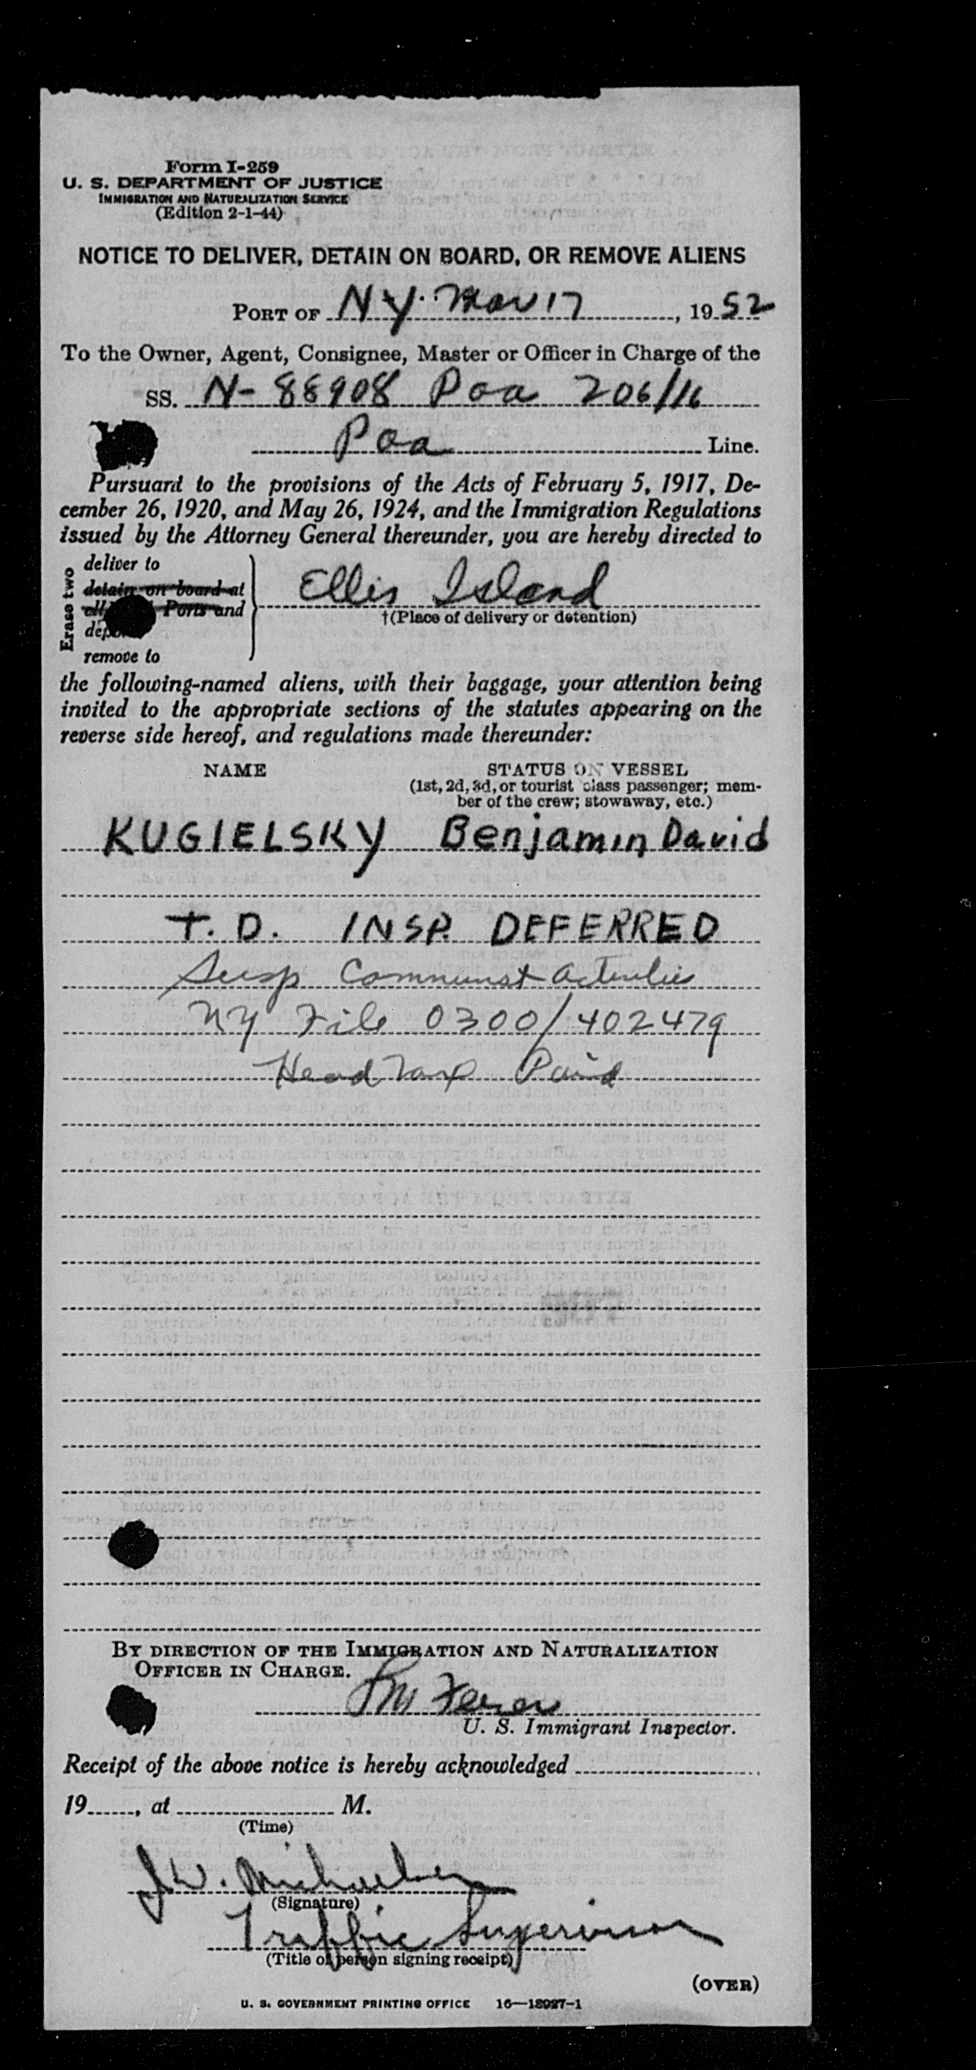 Form I-259
U. S. DEPARTMENT OF JUSTICE
IMMIGRATION AND NATURALIZATION SERVICE
(Edition 2-1-44)
NOTICE TO DELIVER, DETAIN ON BOARD, OR REMOVE ALIENS
PORT OF NY. Mar 17, 1952
To the Owner, Agent, Consignee, Master or Officer in Charge of the
SS. N-88908 Paa 206/16
Paa Line.
Pursuant to the provisions of the Acts of February 5, 1917, De-
cember 26, 1920, and May 26, 1924, and the Immigration Regulations
issued by the Attorney General thereunder, you are hereby directed to
Erase two
deliver to
detain on board at
Ports and
remove to
Ellis Island
†(Place of delivery or detention)
the following-named aliens, with their baggage, your attention being
invited to the appropriate sections of the statutes appearing on the
reverse side hereof, and regulations made thereunder:
NAME STATUS ON VESSEL
(1st, 2d, 3d, or tourist class passenger; mem-
ber of the crew; stowaway, etc.)
KUGIELSKY Benjamin David
T. D. INSP. DEFERRED
Susp Communist activities
NY File 0300/402479
Head Tax Paid
BY DIRECTION OF THE IMMIGRATION AND NATURALIZATION
OFFICER IN CHARGE.
U. S. Immigrant Inspector.
Receipt of the above notice is hereby acknowledged
19, at M.
(Time)
J.W.
(Signature)
Traffic Supervisor
(Title of person signing receipt)
(OVER)
U. S. GOVERNMENT PRINTING OFFICE 16—18027-1